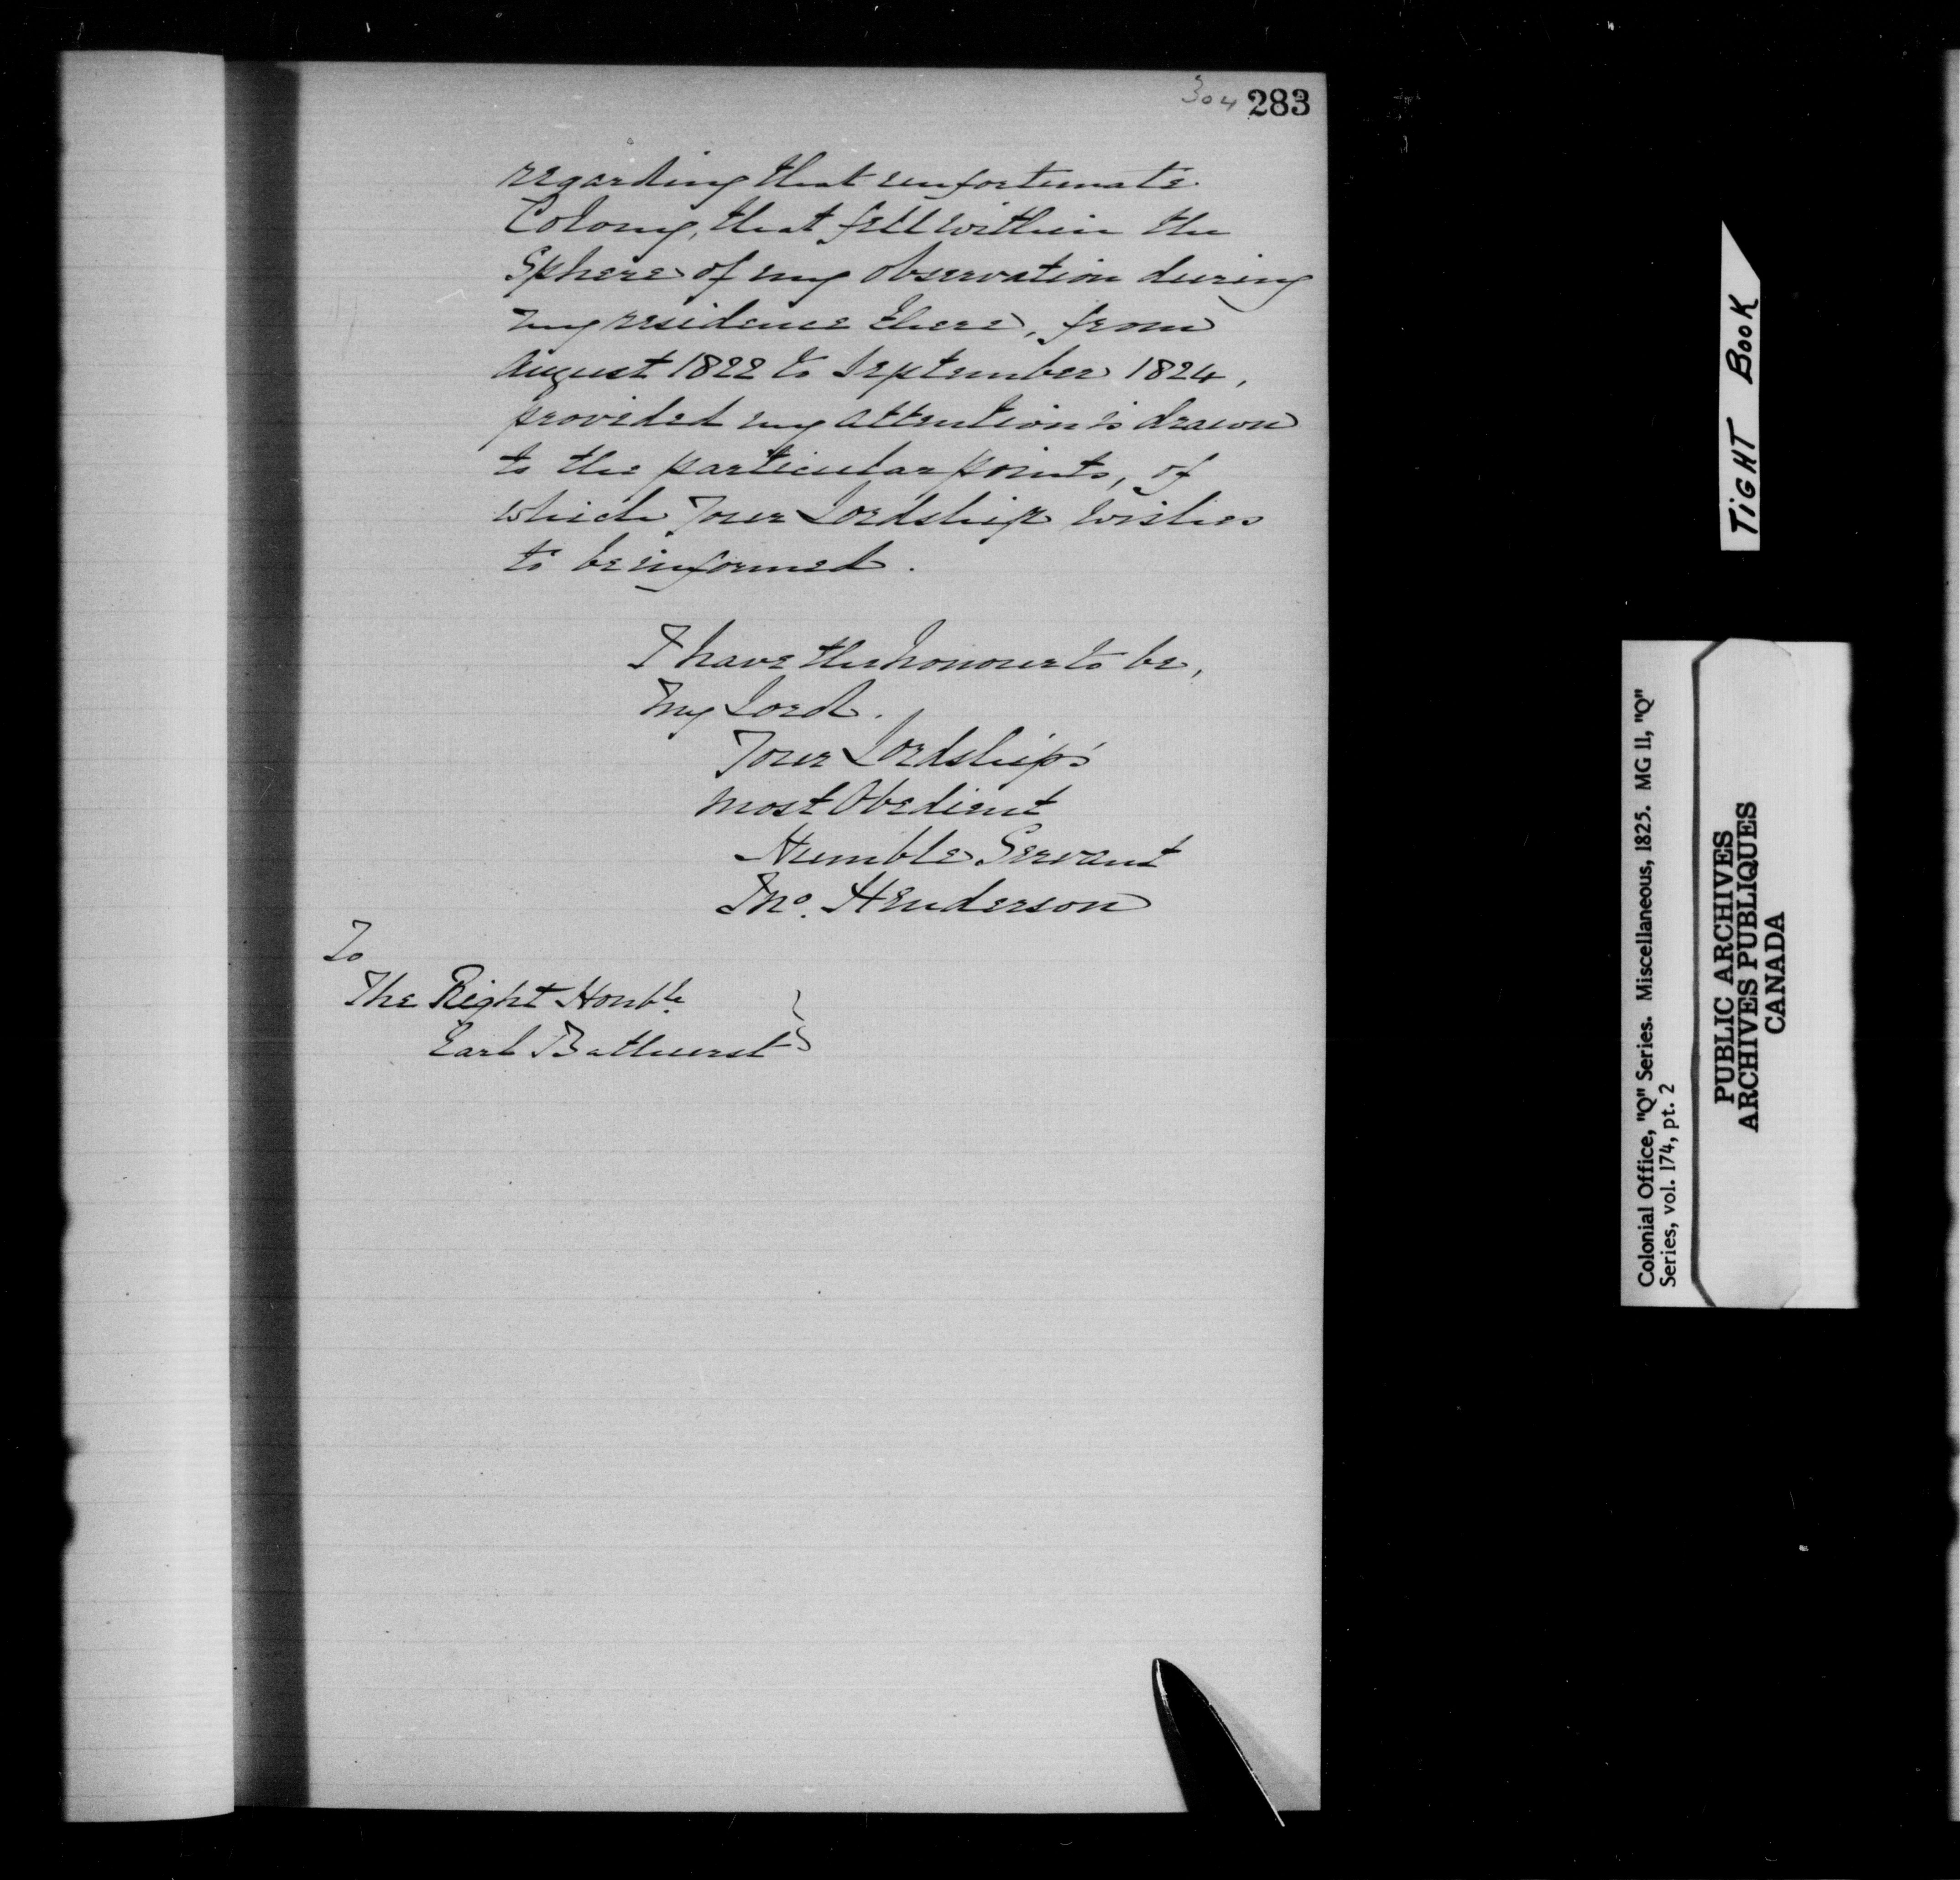 304 283
regarding that unfortunate
Colony, that fell within the
Sphere of my observation during
my residence there, from
August 1822 to September 1824,
provided my attention is drawn
to the particular points, of
which Your Lordship wishes
to be informed.
I have the honour to be,
My Lord.
Your Lordship's
Most Obedient
Humble Servant
Tho. Henderson
To
The Right Honble.
Earl Bathurst
TIGHT BOOK
Colonial Office, "Q" Series. Miscellaneous, 1825. MG 11, "Q"
Series, vol. 174, pt. 2
PUBLIC ARCHIVES
ARCHIVES PUBLIQUES
CANADA